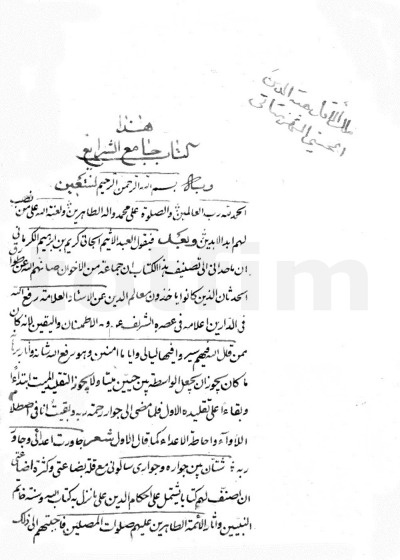 هذا
كتاب جامع الشرايع
بسم الله الرحمن الرحيم
الحمد لله رب العالمين والصلوة على محمد واله الطاهرين ولعنة الله على من نصب
لهم ابد الابدين وبعد فيقول العبد الاثيم الجاني كريم بن ابرهيم الكرماني
ان ما حداني الى تصنيف هذا الكتاب ان جماعة من الاخوان صانهم الله عن
الحدثان الذين كانوا ياخذون معالم الدين عن الاستاد العلامة رفع الله
في الدارين اعلامه في عصره الشريف و به الاطمنان واليقين لانه كان
ممن قال الله فيهم سيروا فيها ليالي واياما امنين وهو رفع الله شانه
ما كان يجوز ان يجعل الواسطة بين حيين ميتا ولا يجوز التقليد للميت ابتداء
وبقاء على تقليده الاول فلما مضى الى جوار رحمة ربه وبقيت انا في
اللأواء واحاطة الاعداء كما قال الاول شعر جاورت اعدائي وجاور
ربه شتان بين جواره وجواري سالوني مع قلة بضاعتي وكثرة اضاعتي
ان اصنف لهم كتابا يشتمل على احكام الدين على ما نزل به كتاب الله وسنة خاتم
النبيين واثار الائمة الطاهرين عليهم صلوات المصلين فاجبتهم الى ذلك